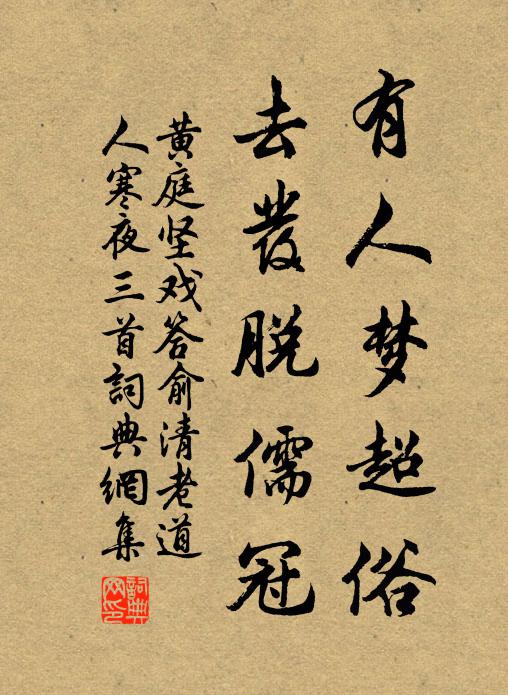 有人梦超俗
去发脱儒冠
黄庭坚戏答俞清老道
人寒夜三首詞典網集
詞典网印